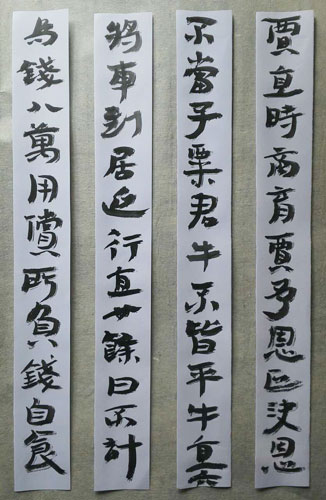 賈直時商育賈予恩已決恩
不當予粟君牛不皆平牛直六
將車到居延行道廿餘日不計
為錢八萬用償所負錢自食